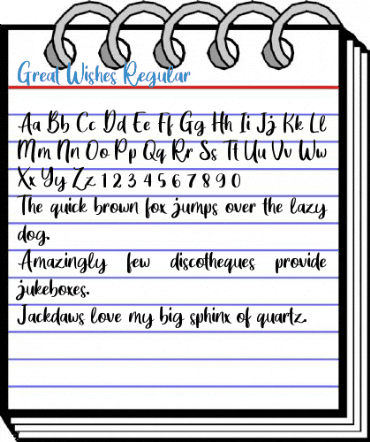 Great Wishes Regular
Aa Bb Cc Dd Ee Ff Gg Hh Ii Jj Kk Ll
Mm Nn Oo Pp Qq Rr Ss Tt Uu Vv Ww
Xx Yy Zz 1 2 3 4 5 6 7 8 9 0
The quick brown fox jumps over the lazy
dog.
Amazingly few discotheques provide
jukeboxes.
Jackdaws love my big sphinx of quartz.